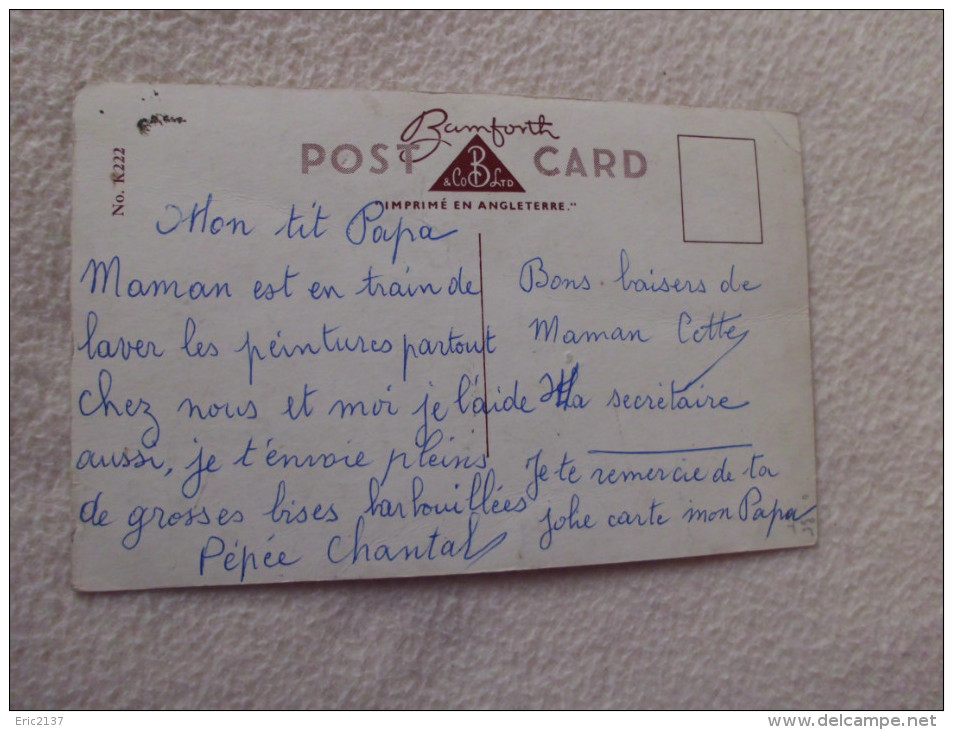 No. K222
Bamforth
POST CARD
B
& Co LTD
"IMPRIMÉ EN ANGLETERRE."
Mon tit Papa
Maman est en train de
laver les peintures partout
chez nous et moi je l'aide
aussi, je t'envoie pleins
de grosses bises barbouillées
Pépée Chantal
Bons baisers de
Maman Cette
la secrétaire
Je te remercie de ta
jolie carte mon Papa
Eric2137
delcampe.net